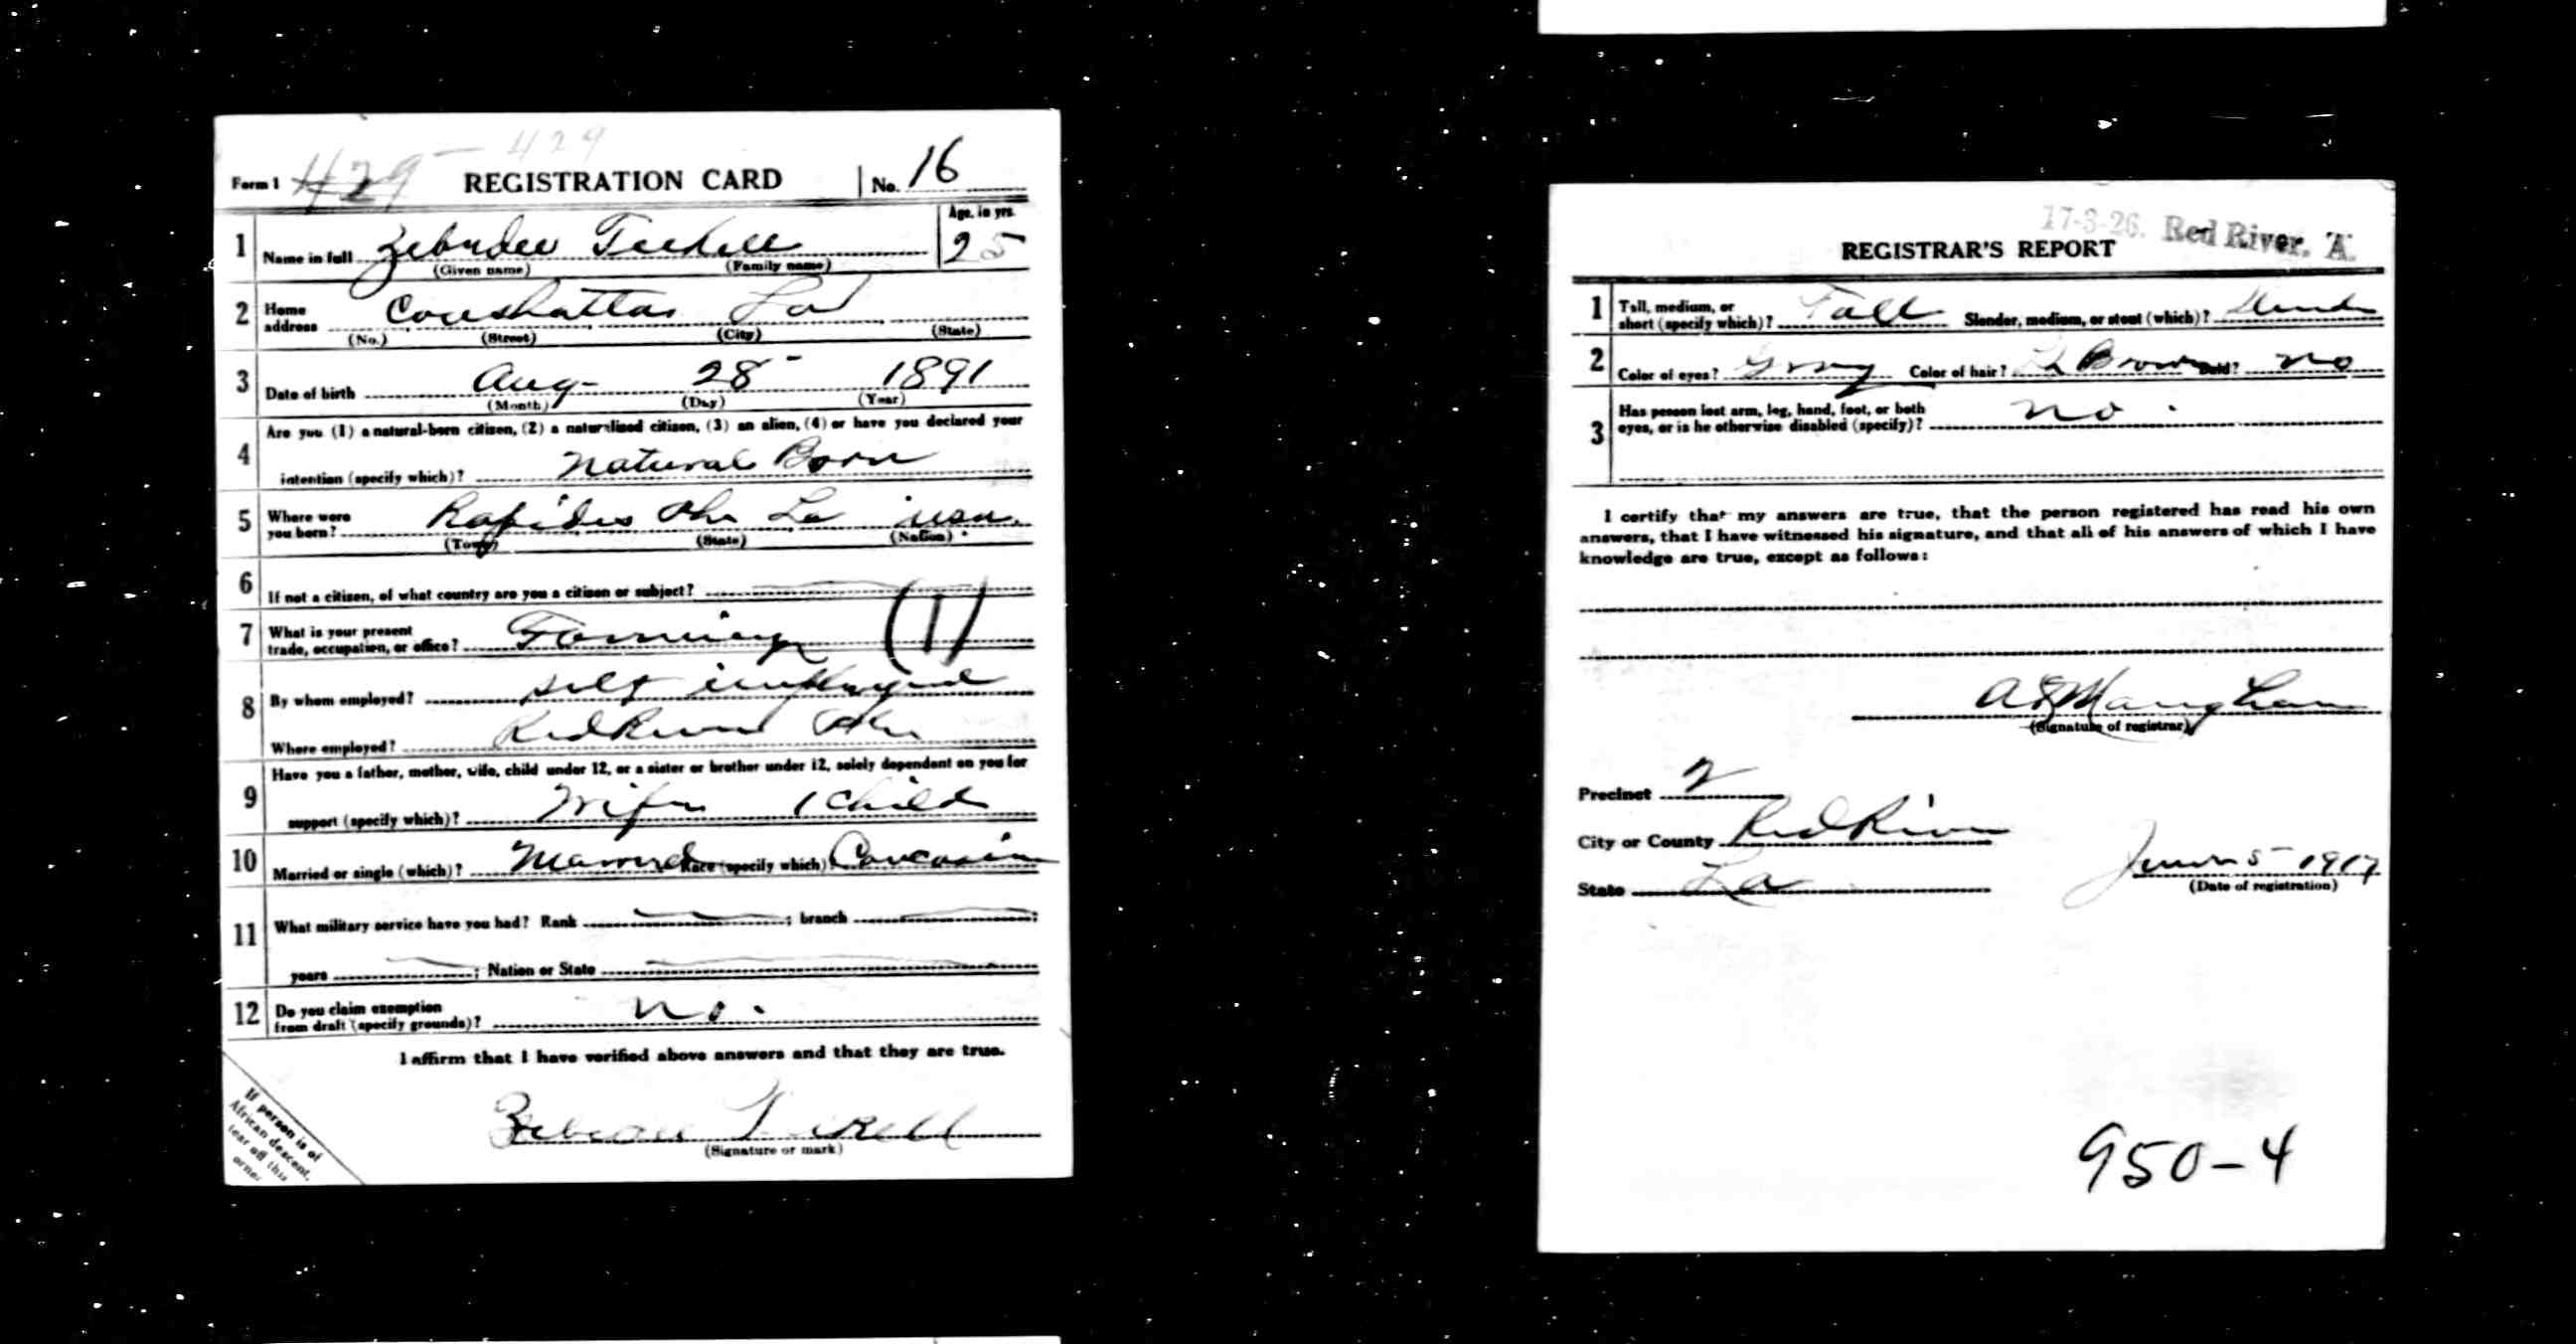 429 - 429
Form 1 REGISTRATION CARD No. 16
1 Name in full Zebudee Teekell Age, in yrs. 25
(Given name) (Family name)
2 Home address Coushatta La
(No.) (Street) (City) (State)
3 Date of birth Aug - 28 - 1891
(Month) (Day) (Year)
4 Are you (1) a natural-born citizen, (2) a naturalized citizen, (3) an alien, (4) or have you declared your
intention (specify which)? Natural Born
5 Where were you born? Rapides Phr La usa.
(Town) (State) (Nation)
6 If not a citizen, of what country are you a citizen or subject?
7 What is your present trade, occupation, or office? Farming (1)
8 By whom employed? self employed
Where employed? Red River Phr
9 Have you a father, mother, wife, child under 12, or a sister or brother under 12, solely dependent on you for
support (specify which)? Wife 1 child
10 Married or single (which)? Married Race (specify which)? Caucasian
11 What military service have you had? Rank ; branch ;
years ; Nation or State
12 Do you claim exemption from draft (specify grounds)? no.
I affirm that I have verified above answers and that they are true.
Teekell
(Signature or mark)
If person is of
African descent,
tear off this
corner
17-3-26. Red River. A.
REGISTRAR'S REPORT
1 Tall, medium, or short (specify which)? Tall Slender, medium, or stout (which)? Slender
2 Color of eyes? Gray Color of hair? Brown Bald? no
3 Has person lost arm, leg, hand, foot, or both eyes, or is he otherwise disabled (specify)? no.
I certify that my answers are true, that the person registered has read his own
answers, that I have witnessed his signature, and that all of his answers of which I have
knowledge are true, except as follows:
Maughan
(Signature of registrar)
Precinct 2
City or County Red River
State La
June 5 - 1917
(Date of registration)
950-4